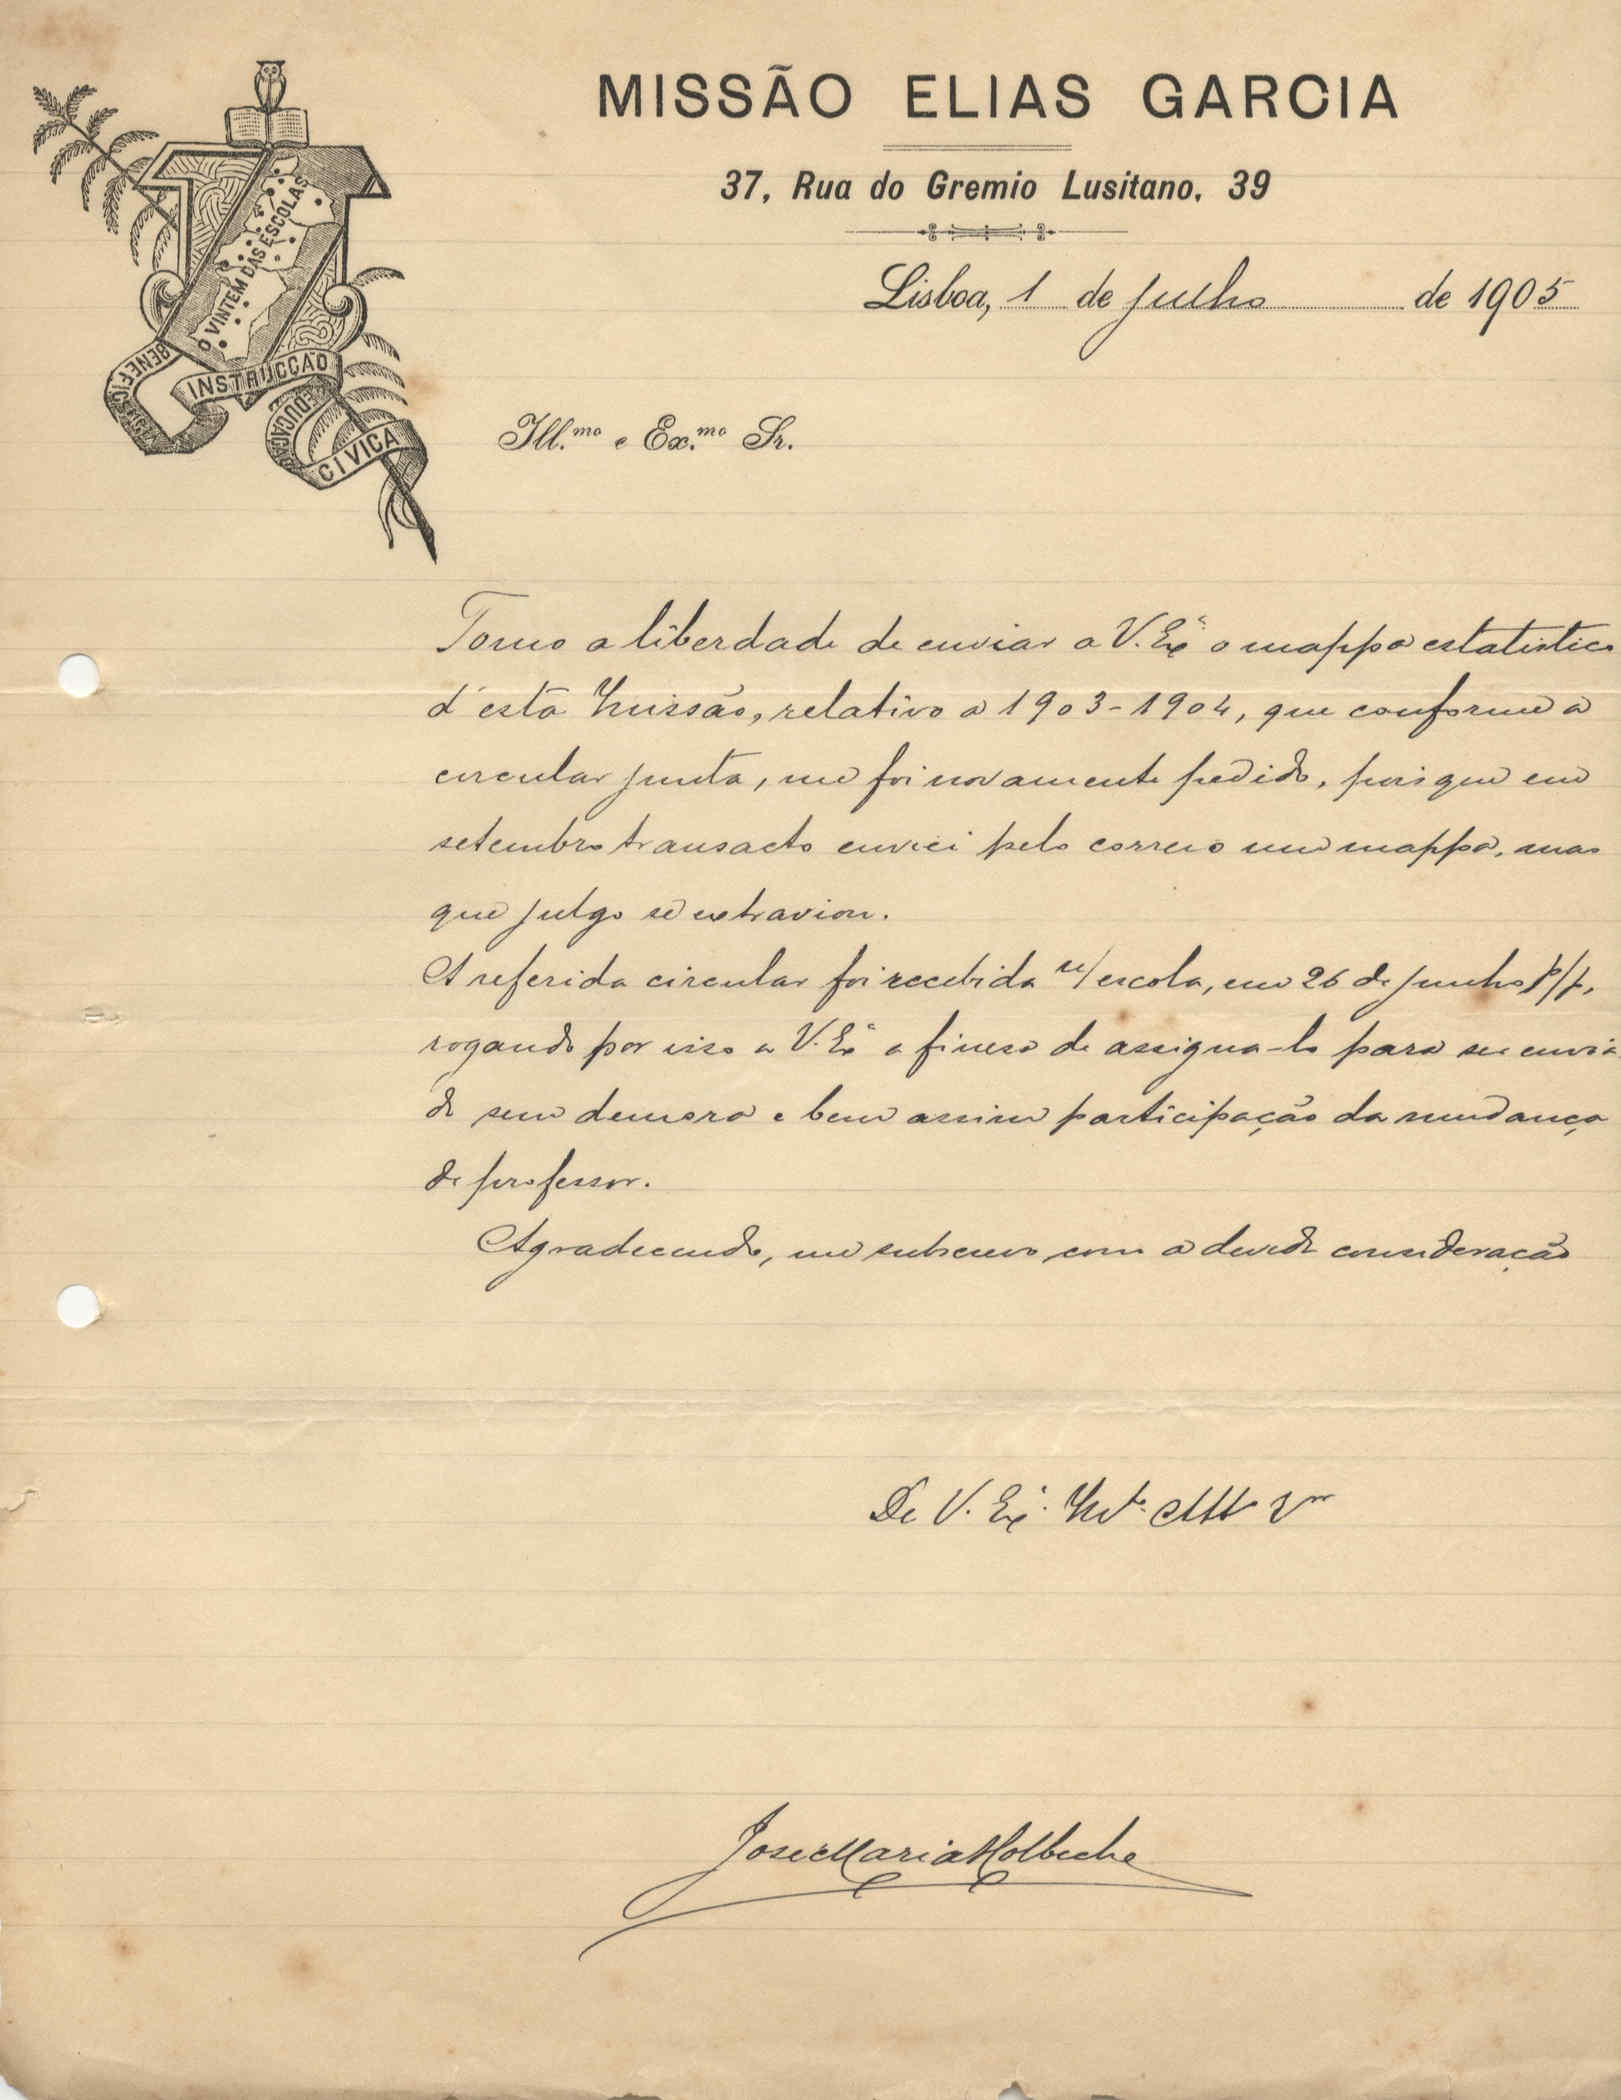 MISSÃO ELIAS GARCIA
37, Rua do Gremio Lusitano, 39
Lisboa, 1 de julho de 1905
O VINTEM DAS ESCOLAS
BENEFICENCIA
INSTRUCÇÃO
EDUCAÇÃO
CIVICA
Ill.mo e Ex.mo Sr.
Tomo a liberdade de enviar a V. Exª o mappa estatistico
d'esta Missão, relativo a 1903-1904, que conforme a
circular junta, me foi novamente pedido, pois que em
setembro transacto enviei pelo correio um mappa, mas
que julgo se extraviou.
A referida circular foi recebida n/ escola, em 26 de junho p/p,
rogando por isso a V. Exª a fineza de assigna-lo para ser envia
do sem demora e bem assim participação da mudança
de professor.
Agradecendo, me subscrevo com a devida consideração
De V. Exª. Mto. Atto Vor
José Maria Holbeche